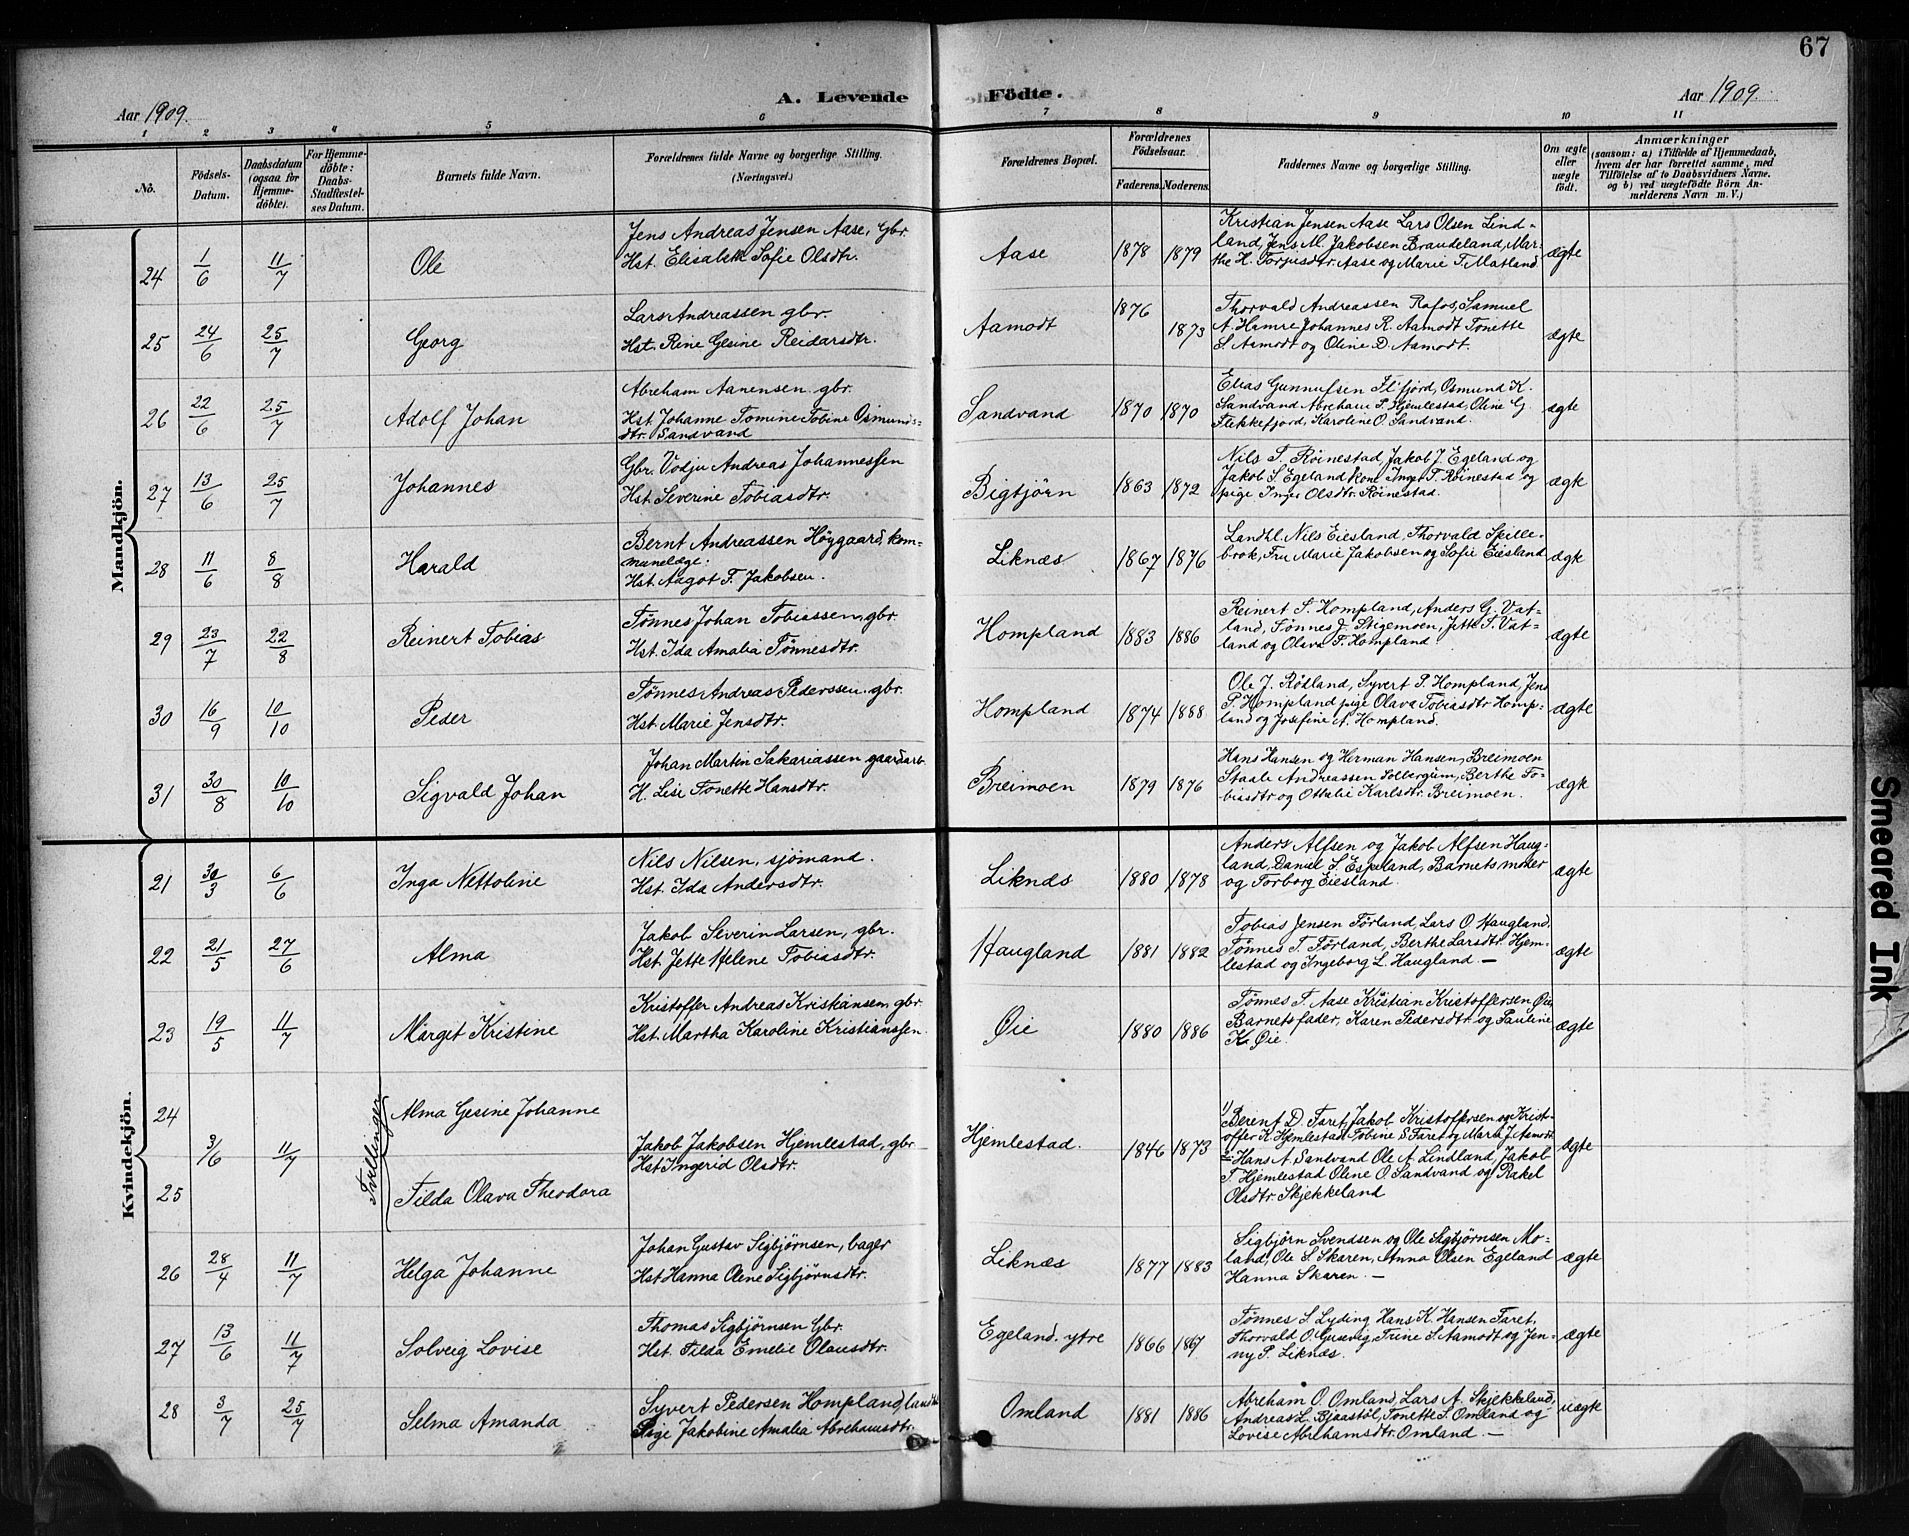 67
Aar 1909.
A. Levende Födte.
Aar 1909.
1 2 3 4 5 6 7 8 9 10 11
No.
Födsels-Datum.
Daabsdatum (ogsaa for Hjemme-döbte).
For Hjemme-döbte: Daabs-Stadfæstel-ses Datum.
Barnets fulde Navn.
Forældrenes fulde Navne og borgerlige Stilling. (Næringsvei.)
Forældrenes Bopæl.
Forældrenes Födselsaar.
Faderens. Moderens.
Faddernes Navne og borgerlige Stilling.
Om ægte eller uægte födt.
Anmærkninger
(saasom: a) i Tilfælde af Hjemmedaab, hvem der har forrettet samme, med Tilföielse af to Daabsvidners Navne. og b) ved uægtefödte Börn An-melderens Navn m. V.)
Mandkjön.
24 1/6 11/7 Ole
Jens Andreas Jensen Aase, Gbr.
Hst. Elisabeth Sofie Olsdtr.
Aase 1878 1879
Kristian Jensen Aase Lars Olsen Lind-
land, Jens M. Jakobsen Braudeland, Mar-
the H. Torjusdtr. Aase og Marie T. Matland
ægte
25 24/6 25/7 Georg
Lars Andreassen gbr.
Hst. Rene Gesine Reidarsdtr.
Aamodt 1876 1873
Thorvald Andreassen Rafos, Samuel
A. Hamre Johannes R. Aamodt Tonette
S. Aamodt og Oline D. Aamodt.
ægte
26 22/6 25/7 Adolf Johan
Abreham Aanensen gbr.
Hst. Johanne Tomine Tobine Osmunds-
dtr. Sandvand
Sandvand 1870 1870
Elias Gunnufsen Flifjord, Osmund K.
Sandvand Abreham S. Hjemlestad, Oline G.
Flekkefjord, Karoline O. Sandvand.
ægte
27 13/6 25/7 Johannes
Gbr. Vodju Andreas Johannessen
Hst. Severine Tobiasdtr.
Bigtjörn 1863 1872
Nils T. Röinestad, Jakob J. Egeland og
Jakob S. Egeland kone Inger T. Röinestad og
pige Inger Olsdtr. Röinestad.
ægte
28 11/6 8/8 Harald
Bernt Andreassen Höygaard, kom-
munelæge.
Hst. Aagot F. Jakobsen.
Liknæs 1867 1876
Landhl. Nils Eiesland, Thorvald Spille-
brok, Fru Marie Jakobsen og Sofie Eiesland
ægte
29 23/7 22/8 Reinert Tobias
Tønnes Johan Tobiassen, gbr.
Hst. Ida Amalia Tønnesdtr.
Hompland 1883 1886
Reinert S. Hompland, Anders G. Vat-
land, Tønnes J. Stigemoen, Jette S. Vat-
land og Olava T. Hompland
ægte
30 16/9 10/10 Peder
Tønnes Andreas Pederssen. gbr.
Hst. Marie Jensdtr.
Hompland 1874 1888
Ole J. Rødland, Syvert P. Hompland, Jens
P. Hompland pige Olava Tobiasdtr. Homp-
land og Josefine A. Hompland.
ægte
31 30/8 10/10 Sigvald Johan
Johan Martin Sakariassen gaardarb.
H. Lise Tonette Hansdtr.
Breimoen 1879 1876
Hans Hansen og Herman Hansen, Breimoen
Staale Andreassen Sollergum, Berthe To-
biasdtr og Ottalie Karlsdtr. Breimoen.
ægte
Kvindekjön.
21 30/3 6/6 Inga Nettoline
Nils Nilsen, sjömand.
Hst. Ida Andersdtr.
Liknæs 1880 1878
Anders Alfsen og Jakob Alfsen Haug-
land, Daniel S. Espeland, Barnets moder
og Torborg Eiesland.
ægte
22 21/5 27/6 Alma
Jakob Severin Larsen, gbr.
Hst. Jette Helene Tobiasdtr.
Haugland 1881 1882
Tobias Jensen Förland, Lars O. Haugland.
Tønnes T. Förland, Berthe Larsdtr. Hjem-
lestad og Ingeborg L. Haugland. —
ægte
23 19/5 11/7 Margit Kristine
Kristoffer Andreas Kristiansen, gbr.
Hst. Martha Karoline Kristianssen.
Øie 1880 1886
Tønnes T. Aase Kristian Kristoffersen Øie
Barnets fader, Karen Pedersdtr og Pauline
K. Øie.
ægte
24 Alma Gesine Johanne
Tvillinger
3/6 11/7
Jakob Jakobsen Hjemlestad, gbr.
Hst Ingerid Olsdtr.
25 Tilda Olava Theodora
Hjemlestad. 1846 1873
1) Berent D. Faret, Jakob Kristoffersen og Krist-
offer K. Hjemlestad Tobine S Faret og Marta J. Aamodt
2) Hans A. Sandvand Ole A. Lindland, Jakob
T. Hjemlestad Oline O. Sandvand og Rakel
Olsdtr. Skjekkeland
ægte
26 28/4 11/7 Helga Johanne
Johan Gustav Sigbjørnsen, bager
Hst Hanna Olene Sigbjørnsdtr.
Liknæs 1877 1883
Sigbjørn Svendsen og Ole Sigbjørnsen Mo-
land, Ole S. Skaren, Anna Olsen Egeland
Hanna Skaren. —
ægte
27 13/6 11/7 Solveig Lovise
Thomas Sigbjørnsen Gbr.
Hst. Tilda Emelie Olausdtr.
Egeland. ytre 1866 1867
Tønnes S. Lyding Hans K. Hansen Faret,
Thorvald O. Gusevig, Trine S. Aamodt og Jen-
ny P. Liknæs.
ægte
28 3/7 25/7 Selma Amanda
Syvert Pedersen Hompland,
Pige Jakobine Amalia Abrehamsdtr.
Omland 1881 1886
Abreham O. Omland, Lars A. Skjekkeland,
Andreas L. Bjaastöl, Tonette S. Omland og
Lovise Abrehamsdtr. Omland. —
uægte
Smeared Ink